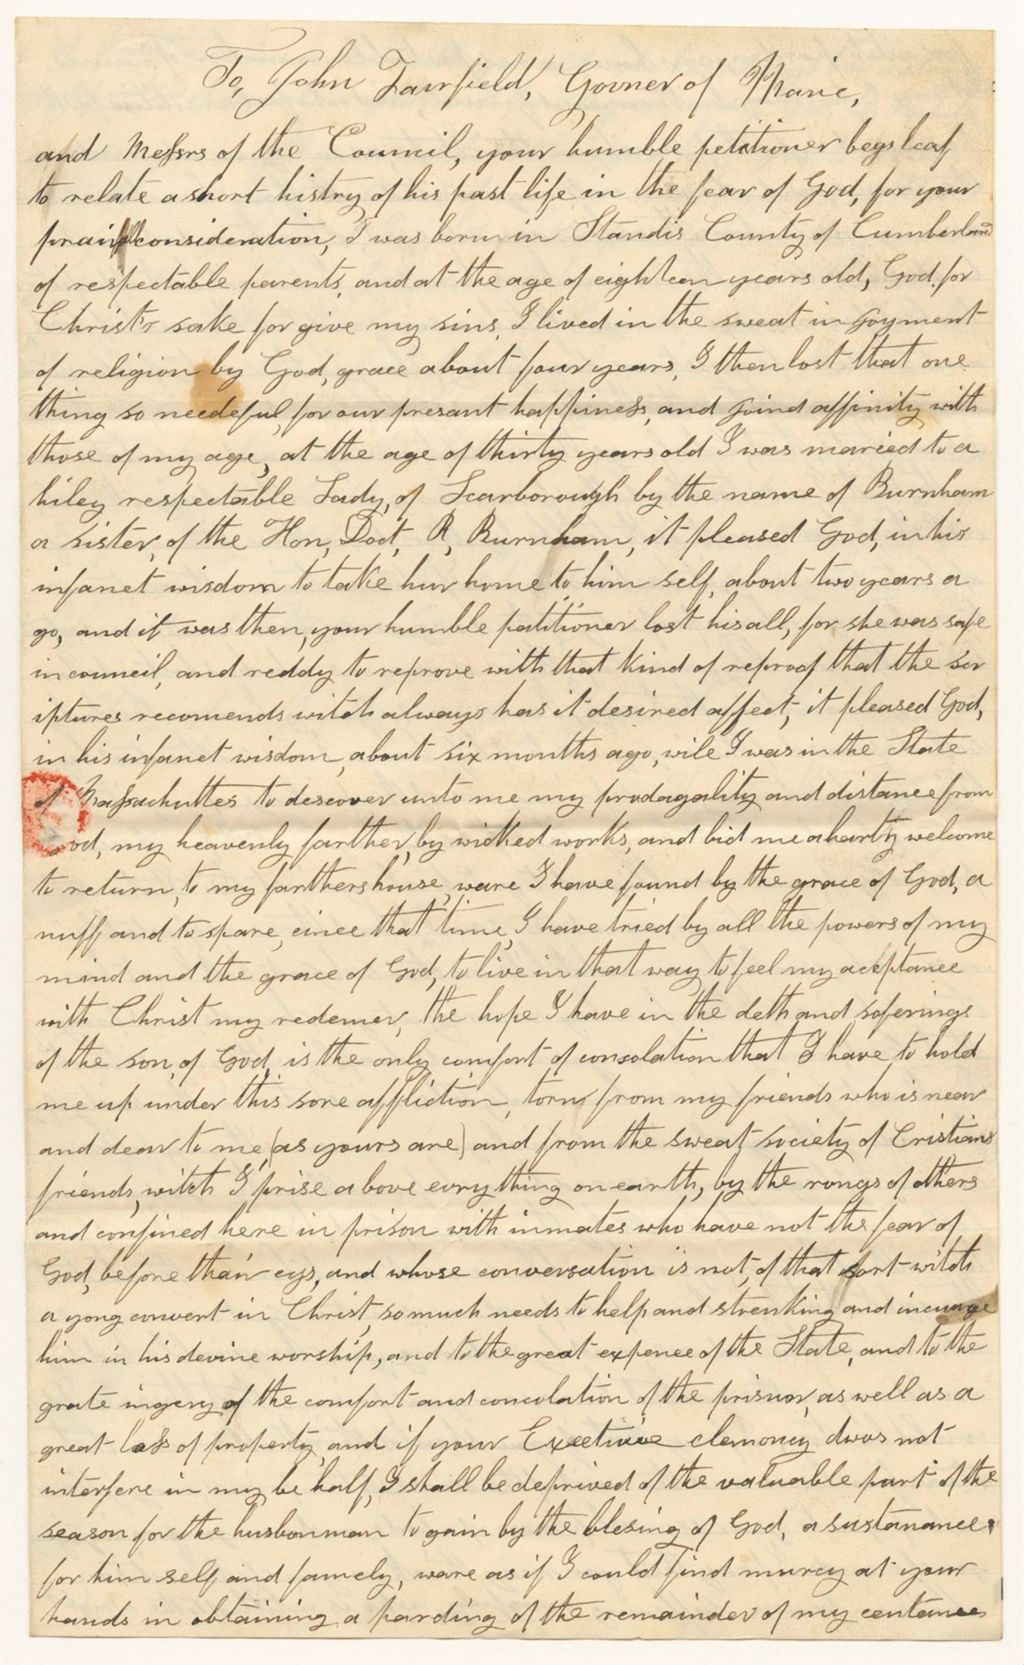 To, John Fairfield, Govner of Maine,
and Messrs of the Council, your humble petitioner begs leaf
to relate a short histry of his past life in the fear of God, for your
consideration, I was born in Standis County of Cumberland
of respectable parents, and at the age of eighteen years old, God, for
Christs sake forgive my sins, I lived in the sweat injoyment
of religion by God, grace about four years, I then lost that one
thing so needeful, for our presant happiness, and joind affinity with
those of my age, at the age of thirty years old I was maried to a
hiley respectable Lady, of Scarborough by the name of Burnham
a sister, of the Hon, Doct, R, Burnham, it pleased God, in his
infanet wisdom to take hur home to him self, about two years a
go, and it was then, your humble petitioner lost his all, for she was safe
in council, and reddy to reprove with that kind of reproof that the scr
iptures recomends witch always has it desired affect, it pleased God,
in his infanet wisdom, about six months ago, wile I was in the State
of Massachuttes to descover unto me my prodagality and distance from
od, my heavenly farther, by wicked works, and bid me a harty welcome
to return, to my farthers house, ware I have found by the grace of God, a
nuff and to spare, cince that time, I have tried by all the powers of my
mind and the grace of God, to live in that way to feel my aceptance
with Christ my redemer, the hope I have in the deth and soferings
of the son, of God, is the only comfort of consolation that I have to hold
me up under this sore affliction, torn from my friends who is near
and dear to me (as yours are) and from the sweat society of Cristians
friends, witch I prise above evrything on earth, by the rongs of others
and confined here in prison with inmates who have not the fear of
God, before thair eys, and whose conversation is not, of that sort witch
a yong convert in Christ, so much needs to help and strenking and incurage
him in his devine worship, and to the great expence of the State, and to the
grate ingery of the comfort and concolation of the prisnor, as well as a
great loss of property, and if your Exectiive clemoncy dwos not
interfere in my be half, I shall be deprived of the valuable part of the
season for the husbonman to gain by the blesing of God, a sustanance
for him self and famely, ware as if I could find murcy at your
hands in obtaining a parding of the remainder of my centance